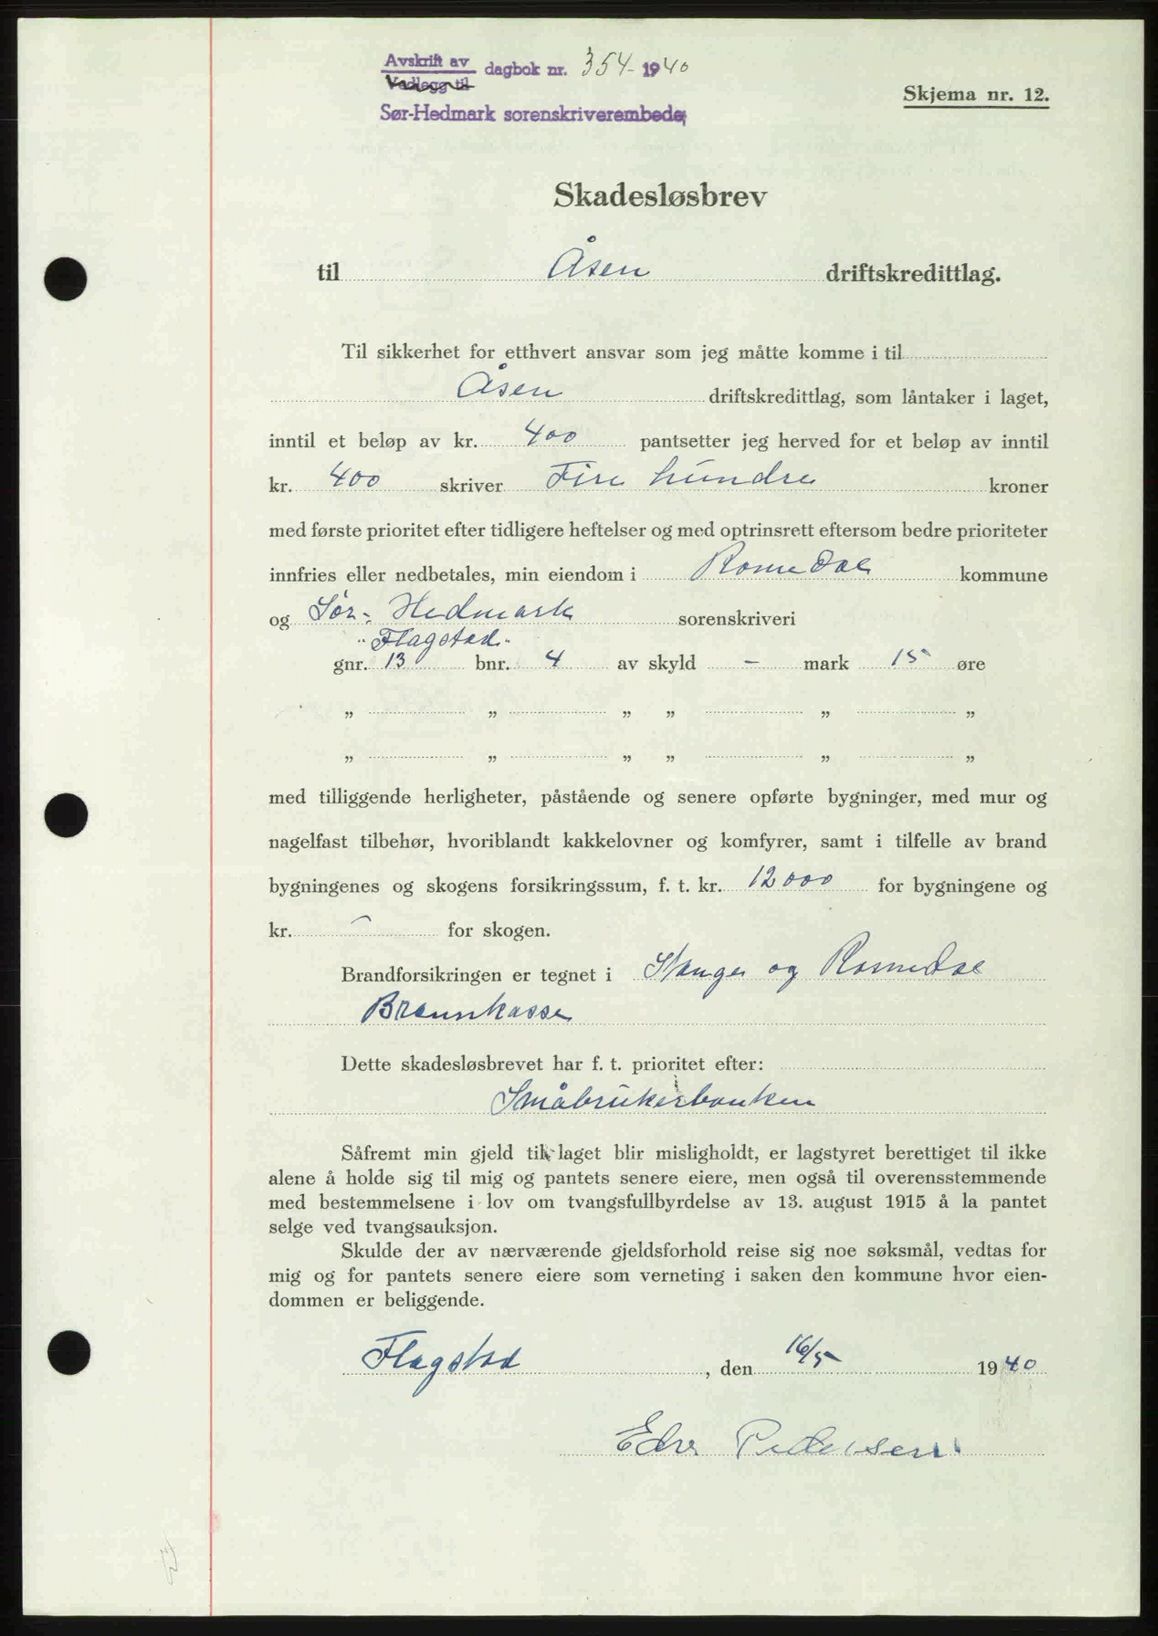 Avskrift av
Vedlegg til
dagbok nr. 354 - 1940
Sør-Hedmark sorenskriverembede
Skjema nr. 12.
Skadesløsbrev
til Åsen driftskredittlag.
Til sikkerhet for etthvert ansvar som jeg måtte komme i til
Åsen driftskredittlag, som låntaker i laget,
inntil et beløp av kr. 400 pantsetter jeg herved for et beløp av inntil
kr. 400 skriver Fire hundre kroner
med første prioritet efter tidligere heftelser og med optrinsrett eftersom bedre prioriteter
innfries eller nedbetales, min eiendom i Romedal kommune
og Sør-Hedmark sorenskriveri
"Flagstad"
gnr. 13 bnr. 4 av skyld - mark 15 øre
„ „ „ „ „ „
„ „ „ „ „ „
med tilliggende herligheter, påstående og senere opførte bygninger, med mur og
nagelfast tilbehør, hvoriblandt kakkelovner og komfyrer, samt i tilfelle av brand
bygningenes og skogens forsikringssum, f. t. kr. 12000 for bygningene og
kr. - for skogen.
Brandforsikringen er tegnet i Stange og Romedal
Brannkasse
Dette skadesløsbrevet har f. t. prioritet efter:
Småbrukerbanken
Såfremt min gjeld til laget blir misligholdt, er lagstyret berettiget til ikke
alene å holde sig til mig og pantets senere eiere, men også til overensstemmende
med bestemmelsene i lov om tvangsfullbyrdelse av 13. august 1915 å la pantet
selge ved tvangsauksjon.
Skulde der av nærværende gjeldsforhold reise sig noe søksmål, vedtas for
mig og for pantets senere eiere som verneting i saken den kommune hvor eien-
dommen er beliggende.
Flagstad, den 16/5 1940
Pedersen